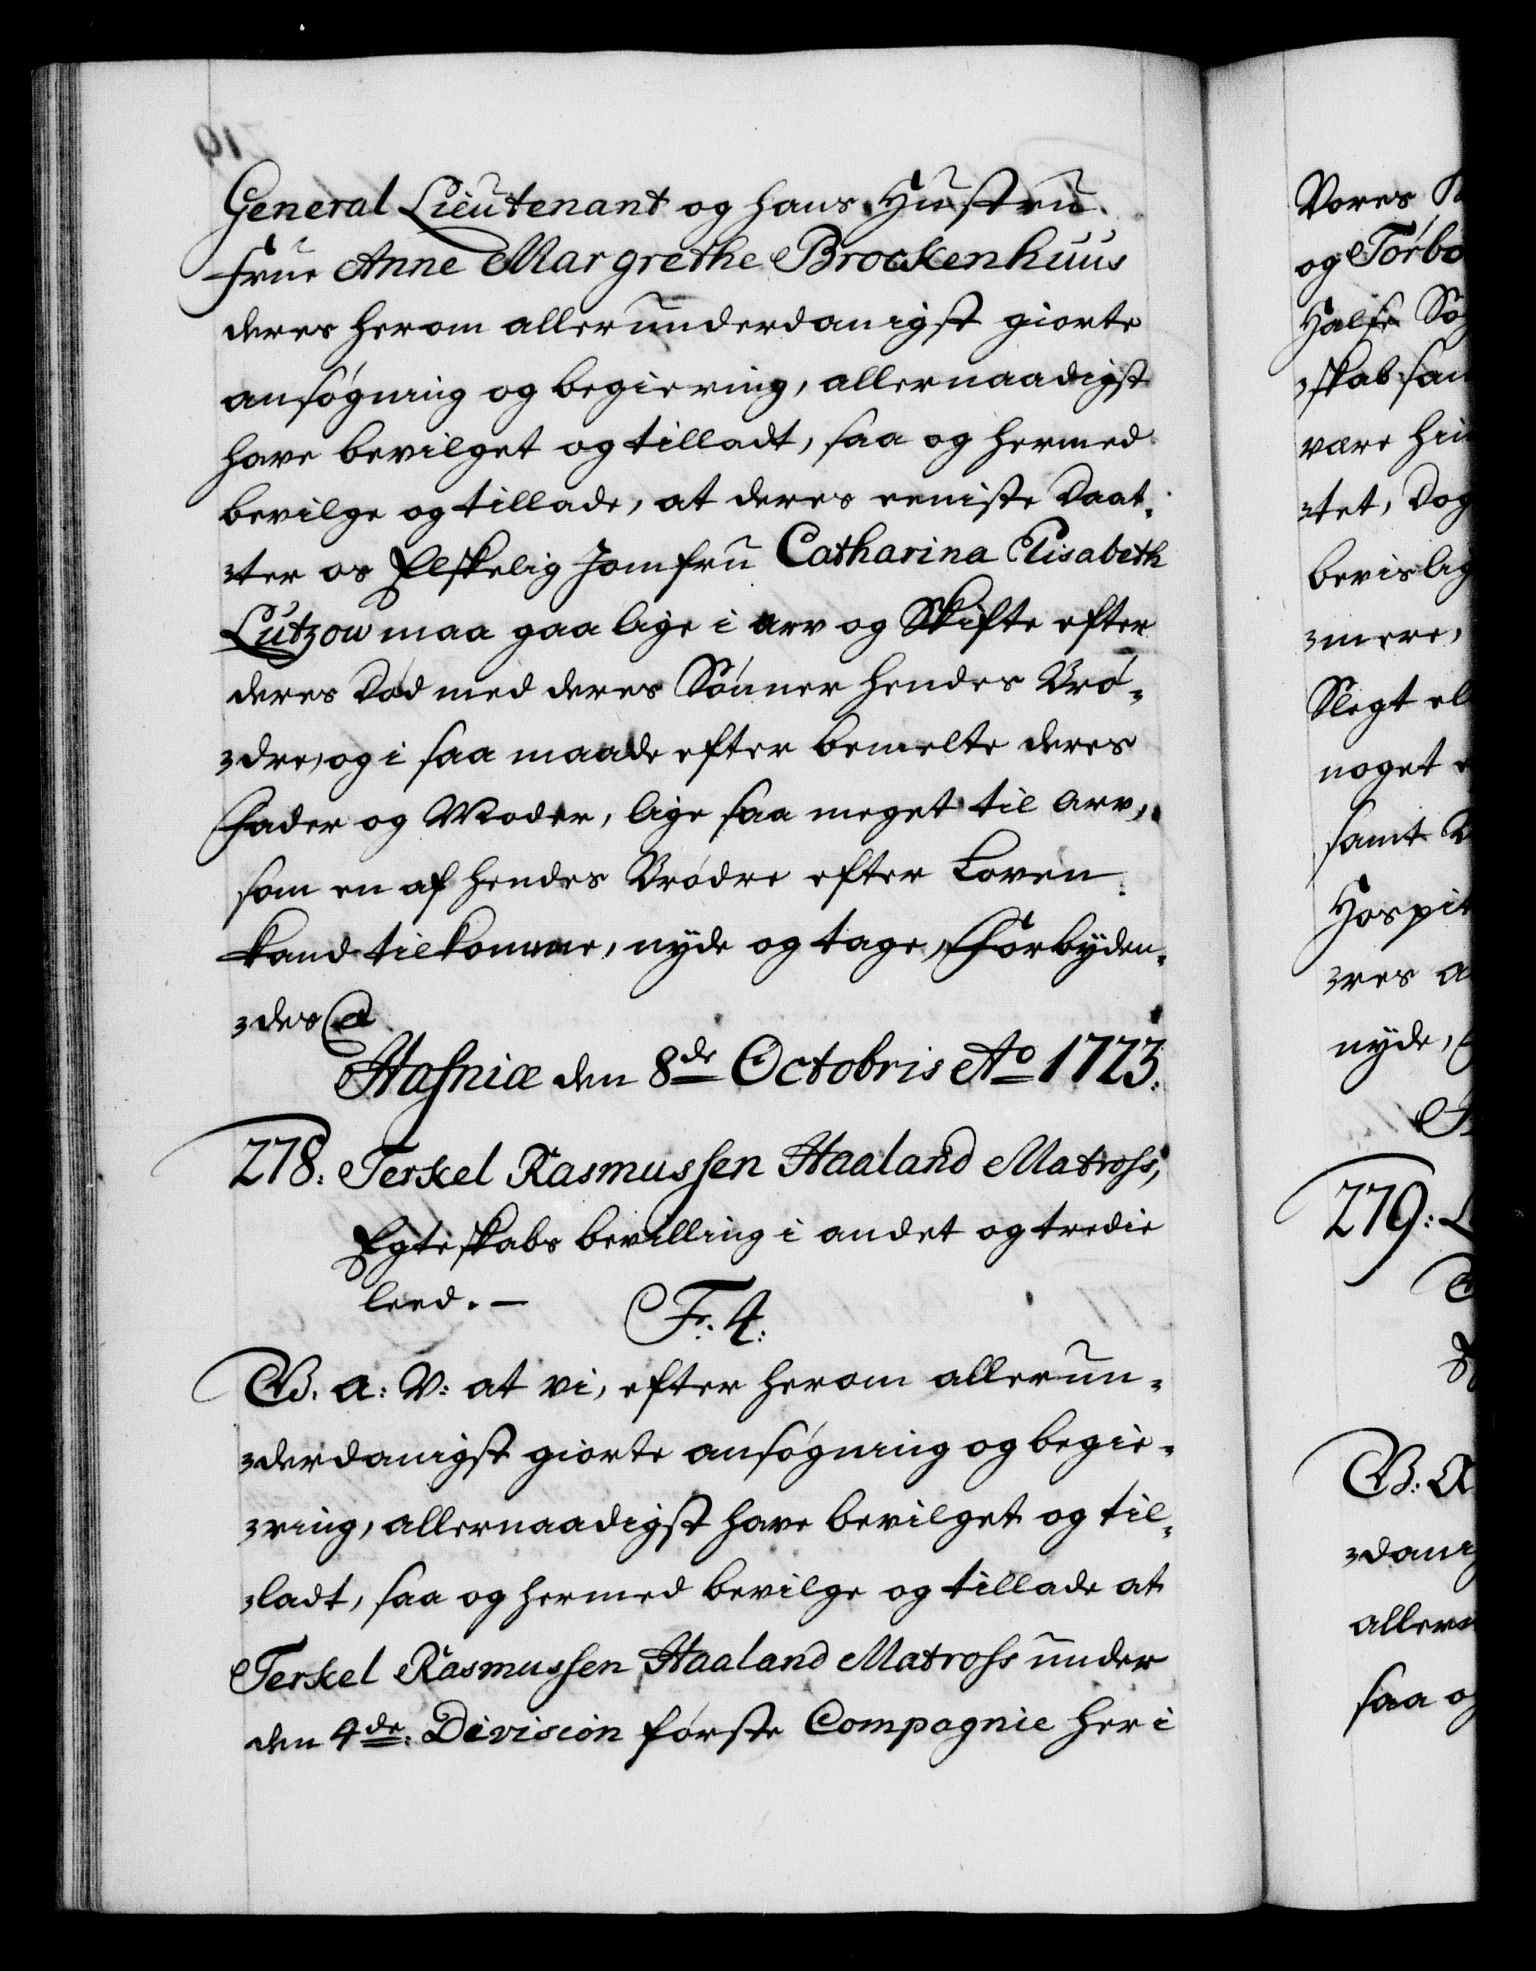 General Lieutenant og hans Hustru
Frue Anne Margrethe Brockenhuus
deres herom allerunderdanigst giorte
ansøgning og begiering, allernaadigst
have bevilget og tilladt, saa og hermed
bevilge og tillade, at deres eeniste Daat-
-ter os Elskelig Jomfru Catharina Elisabeth
Lützow maa gaa lige i arv og Skifte efter
deres Død med deres Sønner hendes Brø-
-dre, og i saa maade efter bemelte deres
Fader og Moder, lige saa meget til Arv,
som en af hendes Brødre efter Loven
kand tilkomme, nyde og tage, Forbyden-
-des &
Hafniæ den 8de Octobris Ao 1723.
278. Terkel Rasmussen Haaland Matross,
Egteskabs bevilling i andet og tredie
leed. —
F. 4.
G. a: V: at vi, efter herom allerun-
-derdanigst giorte ansøgning og begie-
-ring, allernaadigst have bevilget og til-
-ladt, saa og hermed bevilge og tillade at
Terkel Rasmussen Haaland Matross under
den 4de Division første Compagnie her i
Vores
og
Halfe
-skab
være
-tet, Dog
bevislig
-mere,
Slegt
noget
samt
Hospit
-res
nyde,
279:
saa og